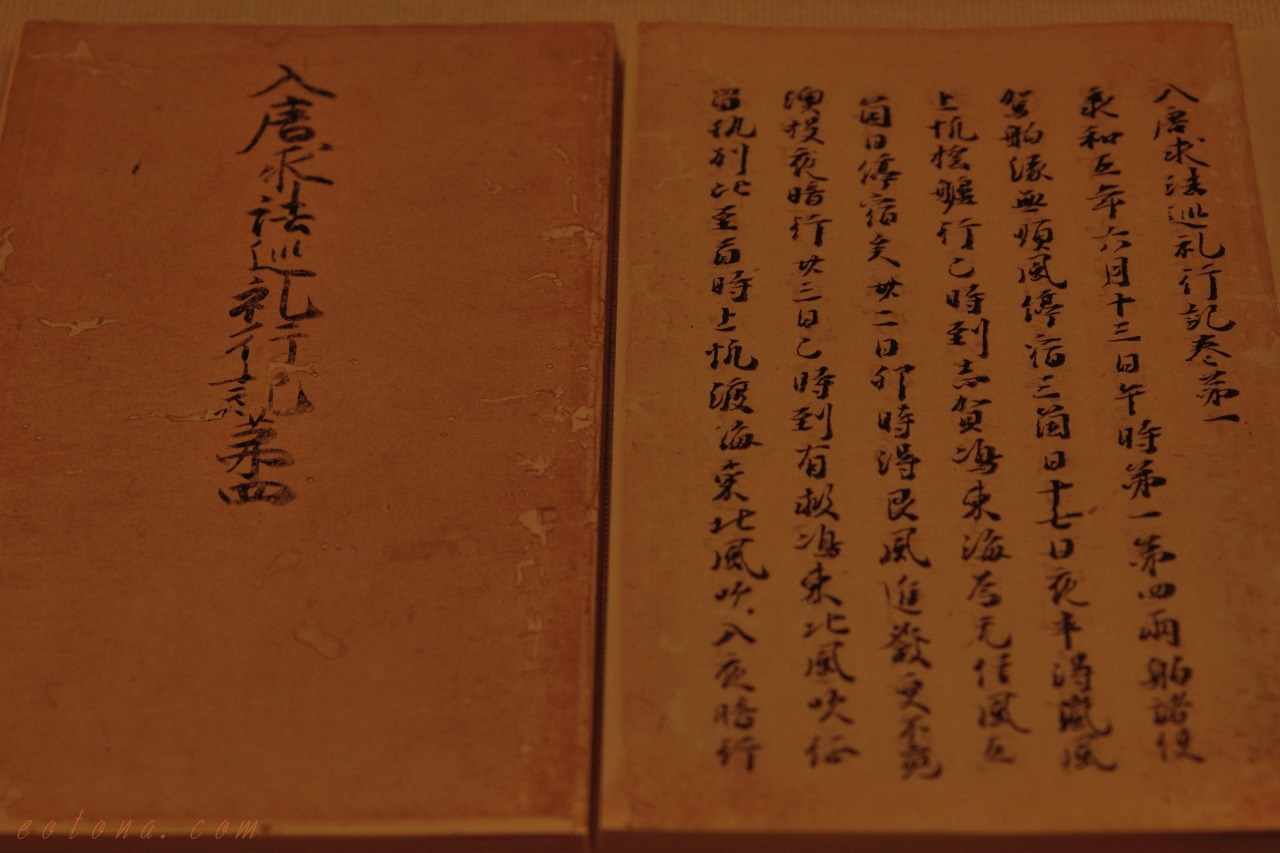 入唐求法巡礼行記卷第一
承和五年六月十三日午時第一第四兩舶諸使
駕舶縁無順風停宿三箇日十七日夜半得嵐風
上帆揺艫行巳時到志賀嶋東海為无信風五
箇日停宿矣廿二日卯時得艮風進發更不覓
澳投夜暗行廿三日巳時到有救嶋東北風吹征
留執別比至酉時上帆渡海東北風吹入夜暗行
入唐求法巡礼行記第四
eotona.com